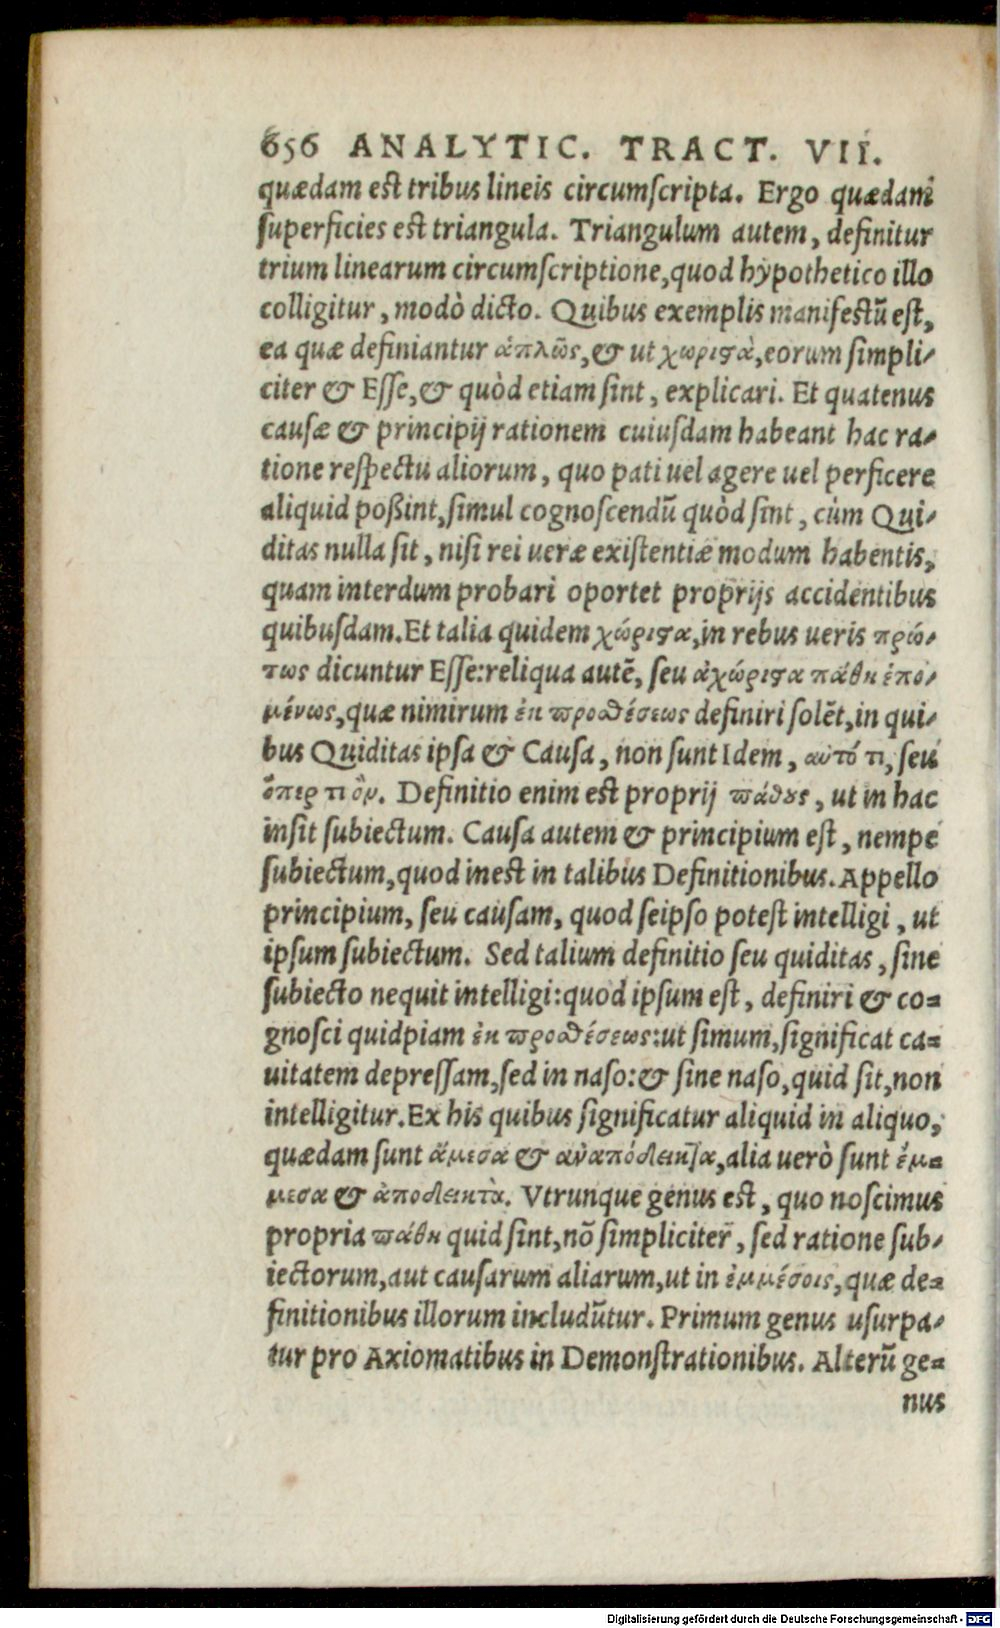 656 ANALYTIC. TRACT. VII.
quædam est tribus lineis circumscripta. Ergo quædam
superficies est triangula. Triangulum autem, definitur
trium linearum circumscriptione,quod hypothetico illo
colligitur, modò dicto. Quibus exemplis manifestū est,
ea quæ definiantur ἁπλῶς,& ut χωριστὰ,eorum simpli-
citer & Esse,& quòd etiam sint, explicari. Et quatenus
causæ & principij rationem cuiusdam habeant hac ra-
tione respectu aliorum, quo pati uel agere uel perficere
aliquid poßint,simul cognoscendū quòd sint, cùm Qui-
ditas nulla sit, nisi rei ueræ existentiæ modum habentis,
quam interdum probari oportet proprijs accidentibus
quibusdam.Et talia quidem χώριστα,in rebus ueris πρώ-
τως dicuntur Esse:reliqua autē, seu ἀχώριστα πάθη ἑπο-
μένως,quæ nimirum ἐκ προσθέσεως definiri solēt,in qui-
bus Quiditas ipsa & Causa, non sunt Idem, αὐτό τι, seu
ὅπερ τι ὄν. Definitio enim est proprij πάθους, ut in hac
insit subiectum. Causa autem & principium est, nempe
subiectum,quod inest in talibus Definitionibus. Appello
principium, seu causam, quod seipso potest intelligi, ut
ipsum subiectum. Sed talium definitio seu quiditas, sine
subiecto nequit intelligi:quod ipsum est, definiri & co-
gnosci quidpiam ἐκ προσθέσεως:ut simum,significat ca-
uitatem depressam,sed in naso:& sine naso,quid sit,non
intelligitur.Ex his quibus significatur aliquid in aliquo,
quædam sunt ἄμεσα & ἀναπόδεικτα,alia uerò sunt ἔμ-
μεσα & ἀποδεικτὰ. Vtrunque genus est, quo noscimus
propria πάθη quid sint,nō simpliciter, sed ratione sub-
iectorum,aut causarum aliarum,ut in ἐμμέσοις,quæ de-
finitionibus illorum includūtur. Primum genus usurpa-
tur pro Axiomatibus in Demonstrationibus. Alterū ge-
nus
Digitalisierung gefördert durch die Deutsche Forschungsgemeinschaft - DFG